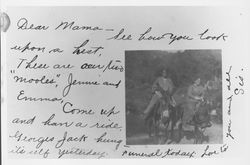 Dear Mama — See how you look
upon a
These are our two
"mooles" Jennie and
Emma. Come up
and have a ride
Georges Jack hung
its self yesterday. Funeral today
you and